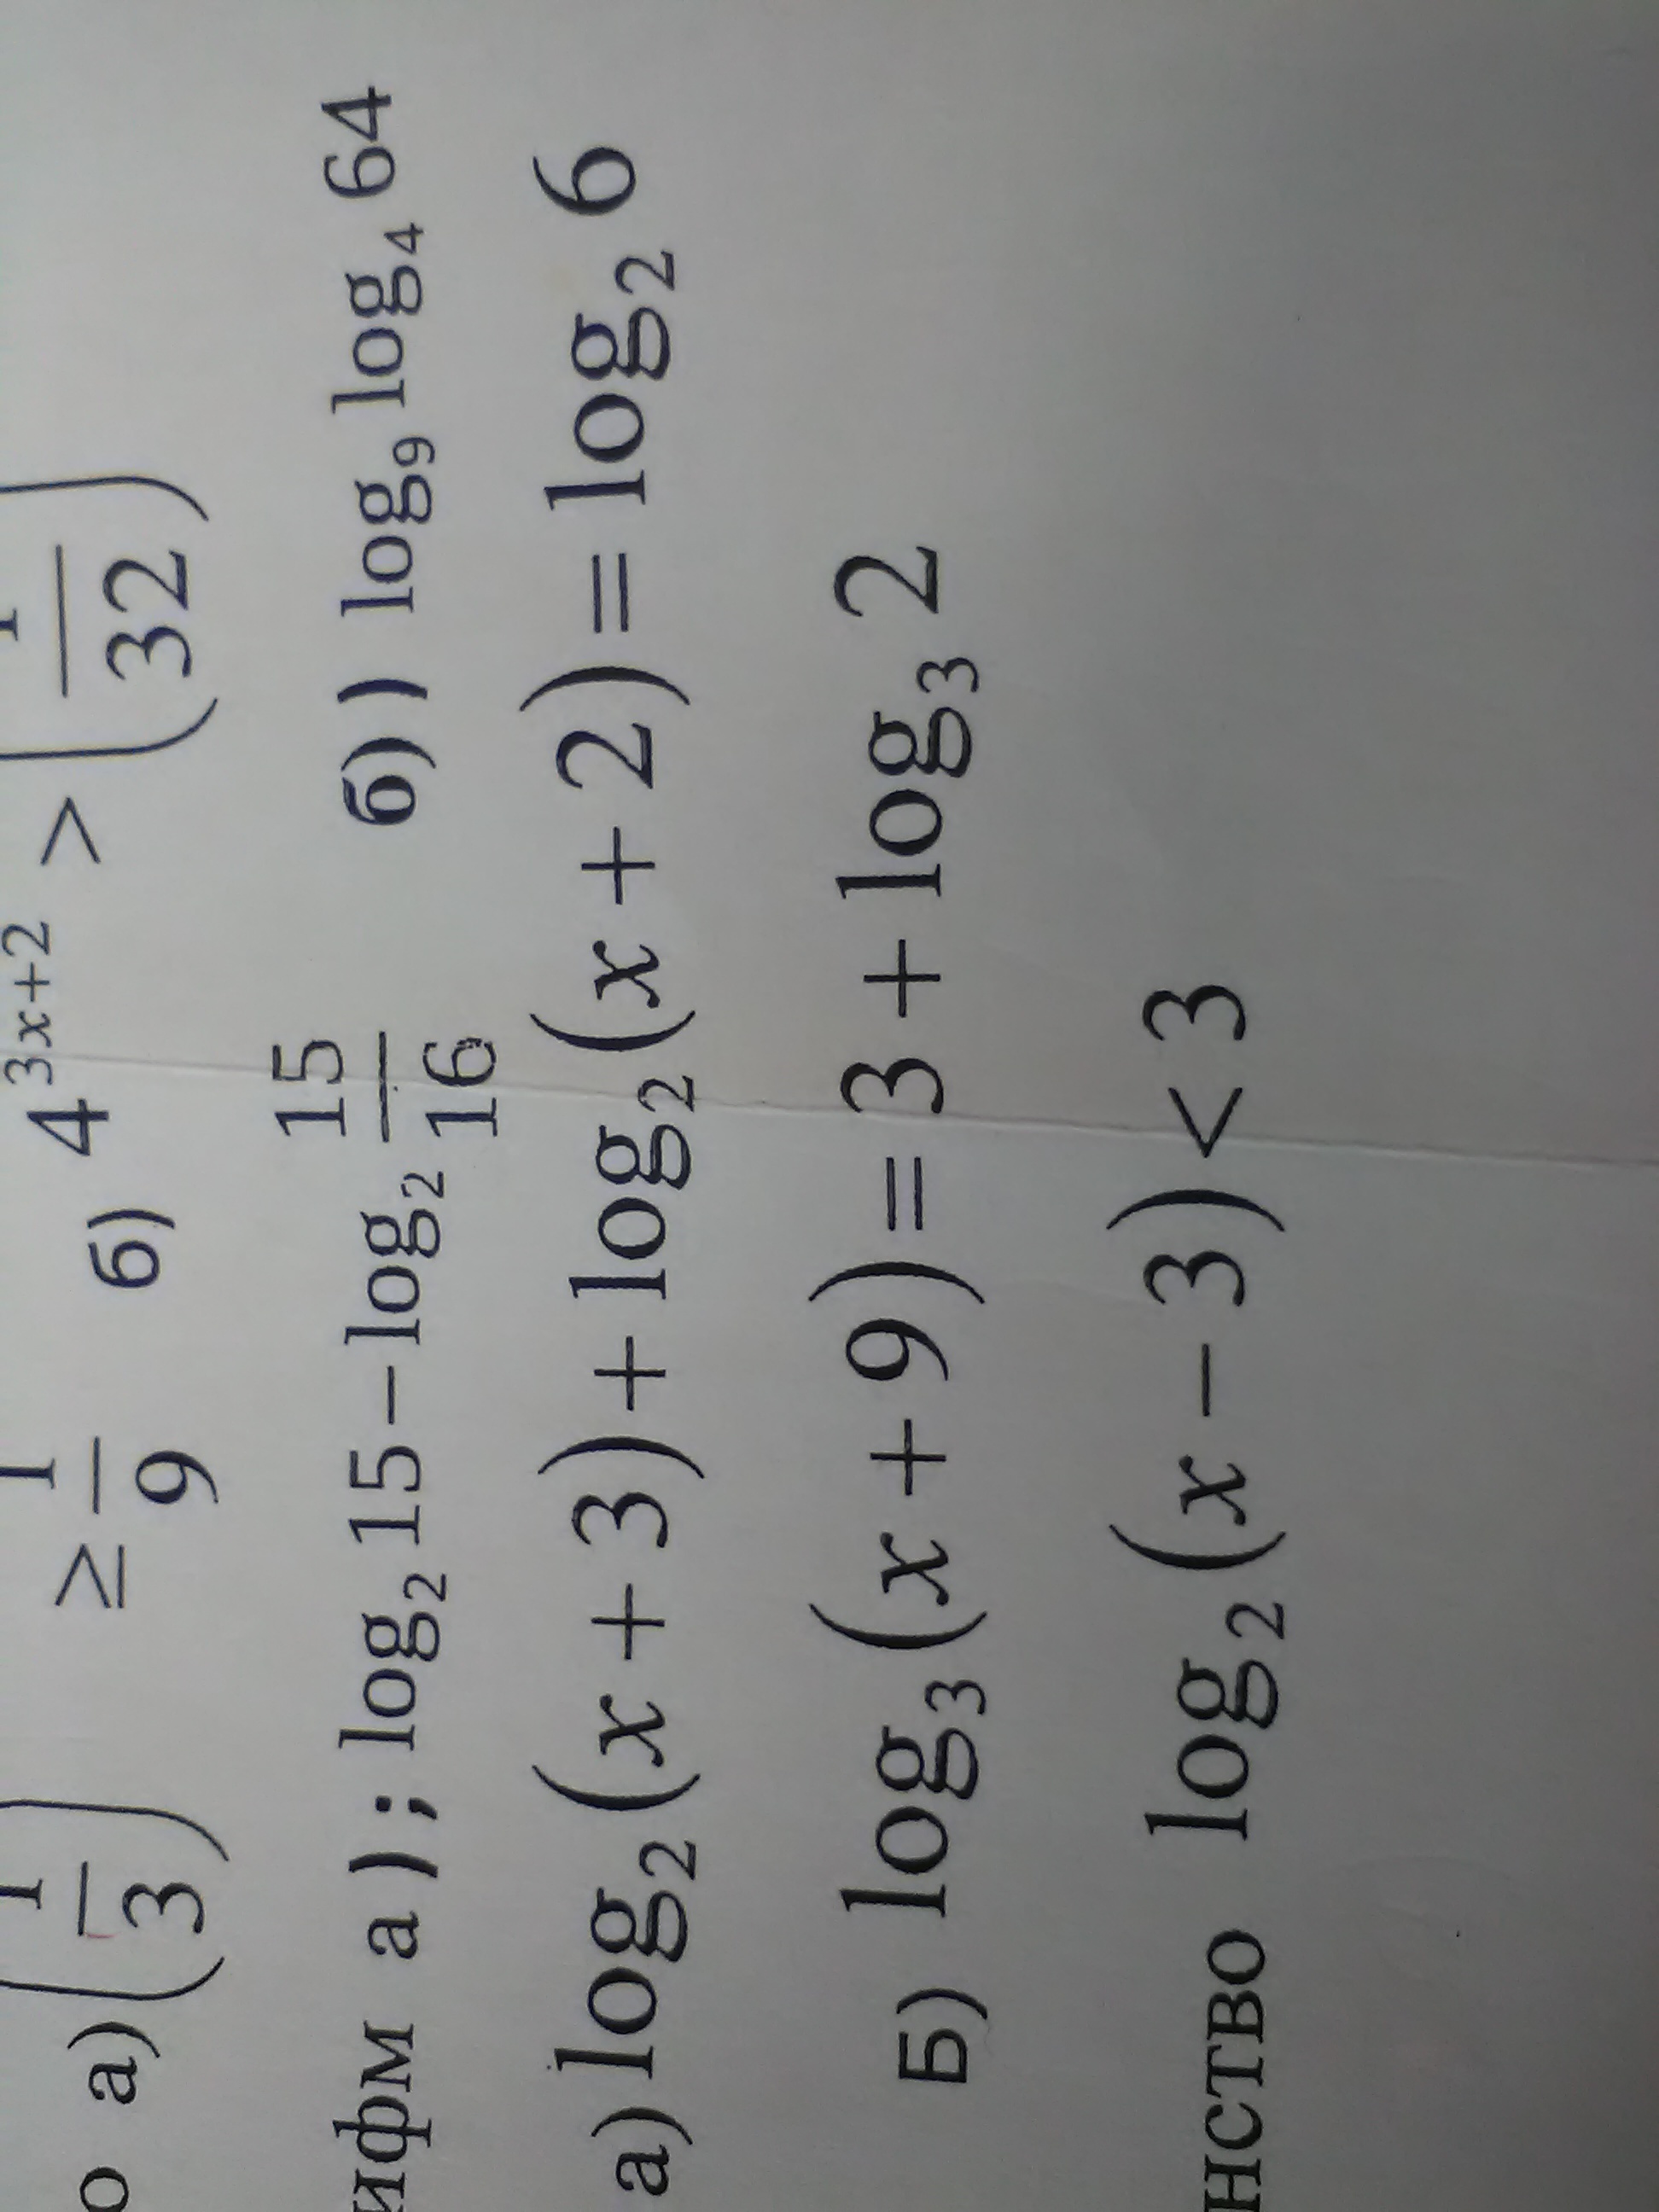 о а) (1/3) ≥ 1/9 б) 4^(3x+2) > (1/32)
ифм а); log₂ 15 − log₂ 15/16 б)) log₉ log₄ 64
а) log₂(x + 3) + log₂(x + 2) = log₂ 6
Б) log₃(x + 9) = 3 + log₃ 2
нство log₂(x − 3) < 3